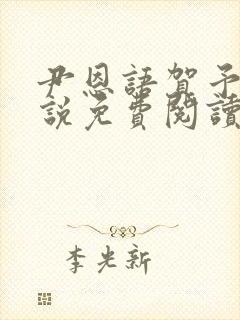 尹恩語賀予
說免費閱讀
李光新